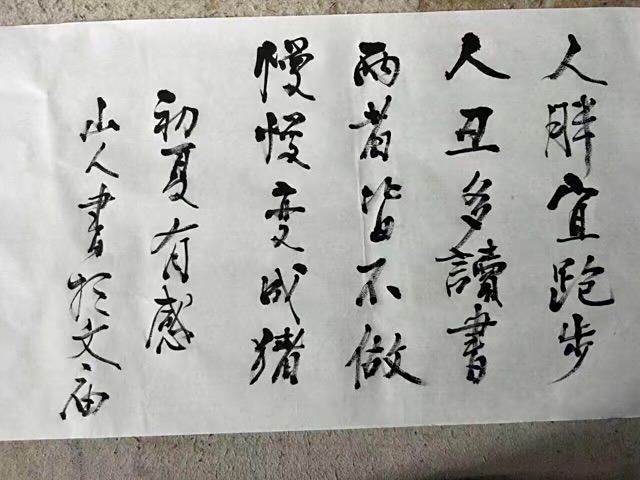 人胖宜跑步
人丑多讀書
两者皆不做
慢慢变成猪
初夏有感
山人書於文庙